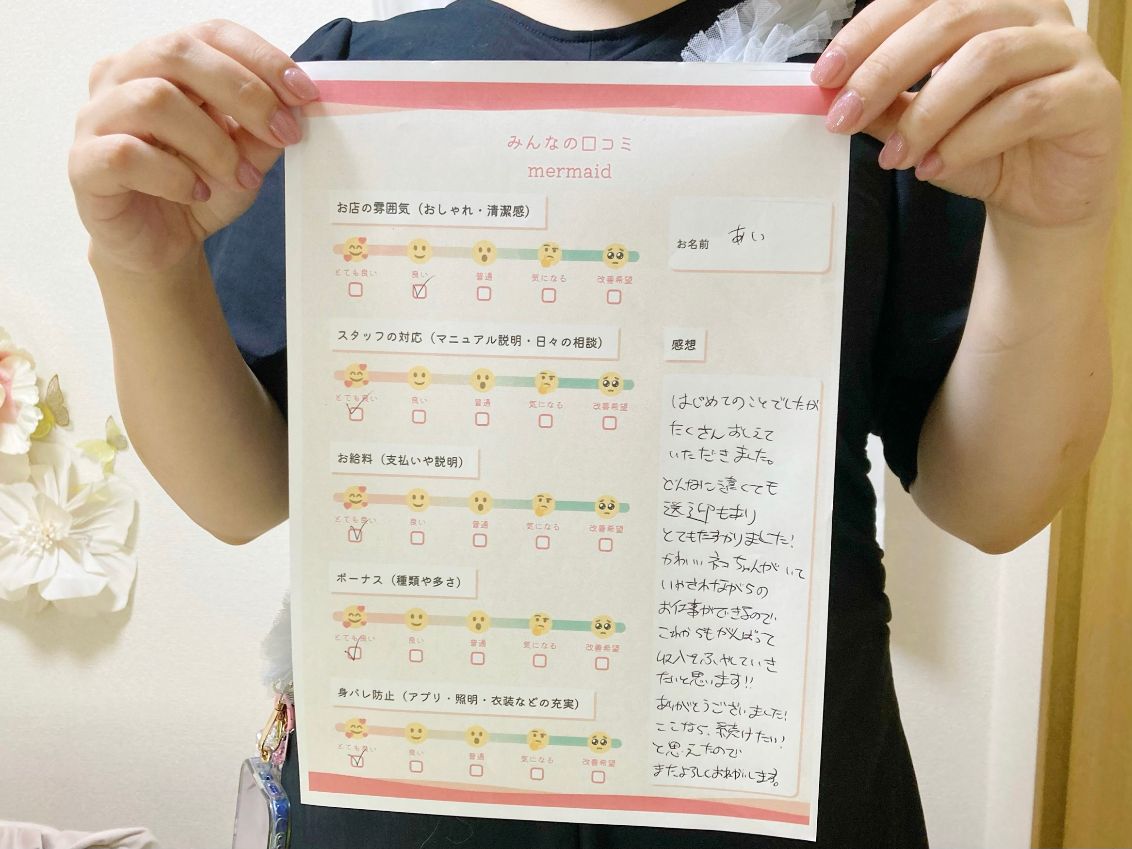 みんなの口コミ
mermaid
お店の雰囲気（おしゃれ・清潔感）
とても良い 良い 普通 気になる 改善希望
スタッフの対応（マニュアル説明・日々の相談）
とても良い 良い 普通 気になる 改善希望
お給料（支払いや説明）
とても良い 良い 普通 気になる 改善希望
ボーナス（種類や多さ）
とても良い 良い 普通 気になる 改善希望
身バレ防止（アプリ・照明・衣装などの充実）
とても良い 良い 普通 気になる 改善希望
お名前 あい
感想
はじめてのことでしたが
たくさんおしえて
いただきました。
どんなに遠くても
送迎もあり
とてもたすかりました！
かわいいネコちゃんがいて
いやされながらの
お仕事ができるので
これからもがんばって
収入をふやしていき
たいと思います!!
ありがとうございました！
ここなら、続けたい！
と思えたので
またよろしくおねがいします。